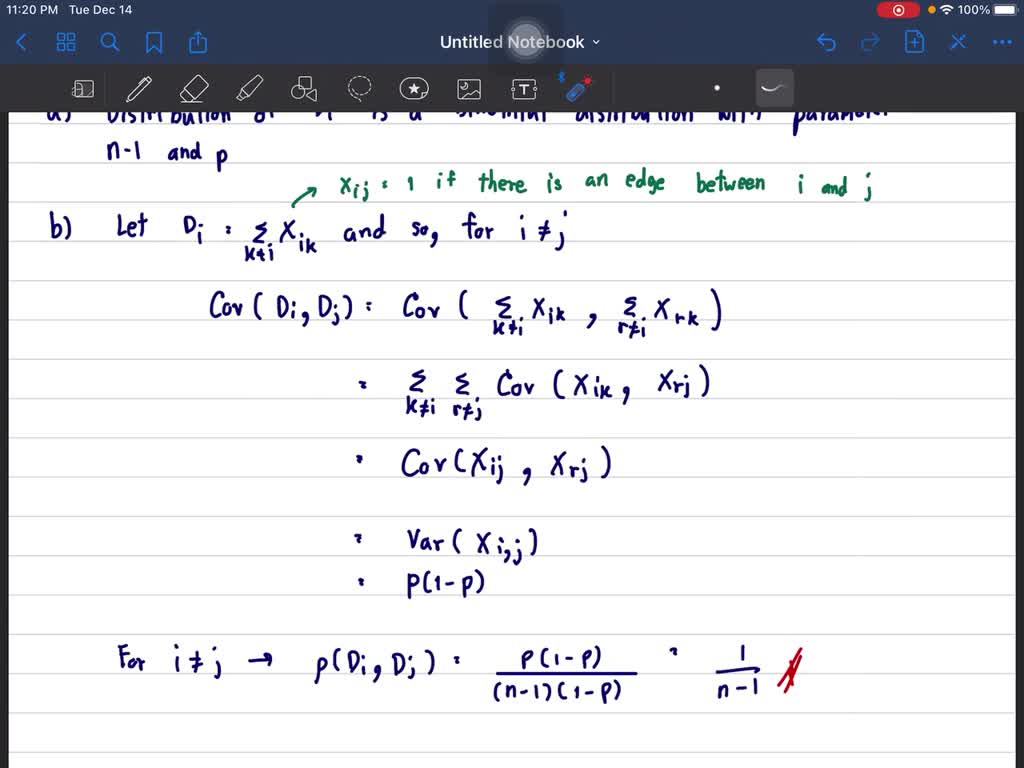 11:20 PM Tue Dec 14
100%
Untitled Notebook
T
a) Distribution of Di is a binomial distribution with parameter
n-1 and p
Xij = 1 if there is an edge between i and j
b) Let Di = Σ k≠i Xik and so, for i ≠ j
Cov(Di, Dj) = Cov( Σ k≠i Xik , Σ r≠i Xrk )
= Σ k≠i Σ r≠j Cov (Xik, Xrj)
= Cov(Xij , Xrj)
= Var( Xi,j)
= p(1-p)
For i ≠ j → p(Di, Dj) = p(1-p) / (n-1)(1-p) = 1 / n-1